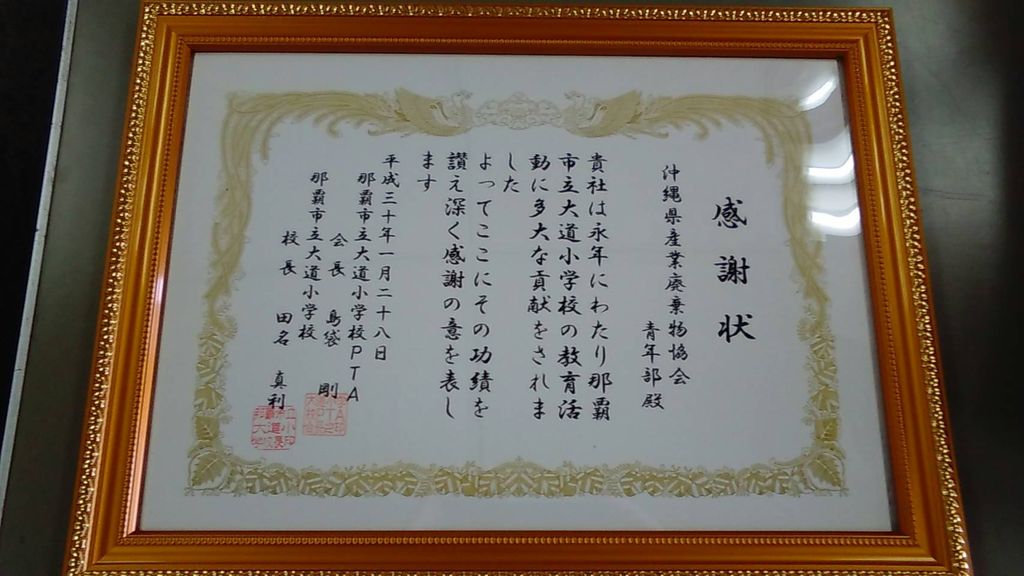 感謝状
沖縄県産業廃棄物協会
青年部殿
貴社は永年にわたり那覇
市立大道小学校の教育活
動に多大な貢献をされま
した
よってここにその功績を
讃え深く感謝の意を表し
ます
平成三十年一月二十八日
那覇市立大道小学校PTA
会長 島袋 剛
那覇市立大道小学校
校長 田名 真利